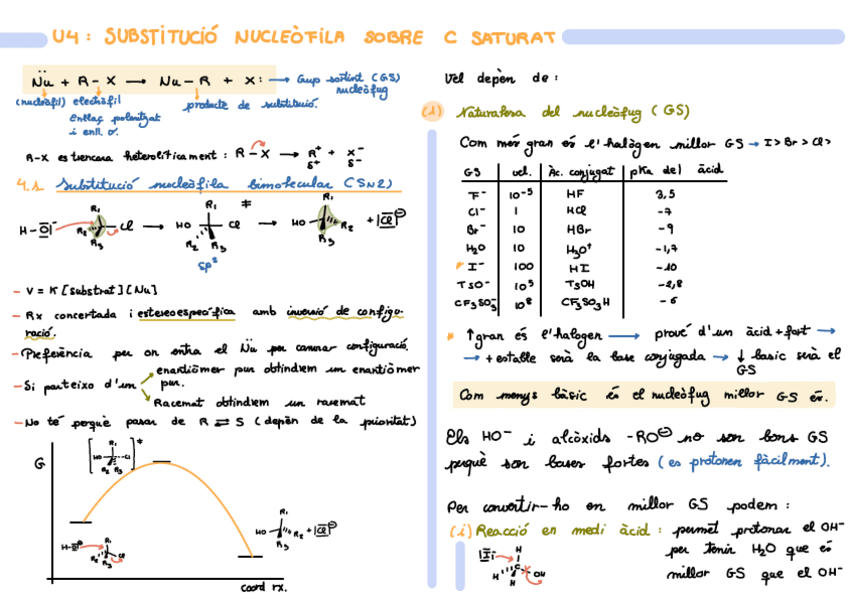 U4: SUBSTITUCIÓ NUCLEÒFILA SOBRE C SATURAT
N̈u + R-X → Nu-R + X: → Grup sortint (GS)
nucleòfug
(nucleòfil) electròfil
producte de substitució.
Enllaç polaritzat
i enll. σ.
R-X es trencarà heterolíticament: R-X → R⁺ + X⁻
δ⁺ δ⁻
4.1 Substitució nucleòfila bimolecular (SN2)
R₁ R₁ ≠ R₁
H-O⁻ Cl → HO Cl → HO R₂ + |Cl|⊖
R₂ R₃ R₂ R₃ R₃
sp²
- V = K [substrat][Nu]
- Rx concertada i estereoespecífica amb inversió de configu-
ració.
- Preferència per on entra el N̈u per canviar configuració.
- Si parteixo d'un
enantiòmer pur obtindrem un enantiòmer
pur.
Racemat obtindrem un racemat
- No té perquè passar de R ⇄ S (depèn de la prioritat)
G
R₁ ≠
HO Cl
R₂ R₃
H-O⁻ R₁ Cl
R₂ R₃
R₁
HO R₂ + |Cl|⊖
R₃
coord rx.
Vel depèn de:
(1) Naturalesa del nucleòfug (GS)
Com més gran és l'halògen millor GS → I > Br > Cl >
GS vel. Àc. conjugat pKa del àcid
F⁻ 10⁻⁵ HF 3,5
Cl⁻ 1 HCl -7
Br⁻ 10 HBr -9
H₂O 10 H₃O⁺ -1,7
* I⁻ 100 HI -10
TSO⁻ 10⁵ TSOH -2,8
CF₃SO₃⁻ 10⁸ CF₃SO₃H -6
* ↑gran és l'halogen → prové d'un àcid + fort →
→ + estable serà la base conjugada → ↓ basic serà el
GS
Com menys bàsic és el nucleòfug millor GS és.
Els HO⁻ i alcòxids -RO⊖ no son bons GS
perquè son bases fortes (es protonen fàcilment).
Per convertir-ho en millor GS podem:
(i) Reacció en medi àcid: permet protonar el OH⁻
per tenir H₂O que és
millor GS que el OH⁻
|I|⁻ H
H C OH
H